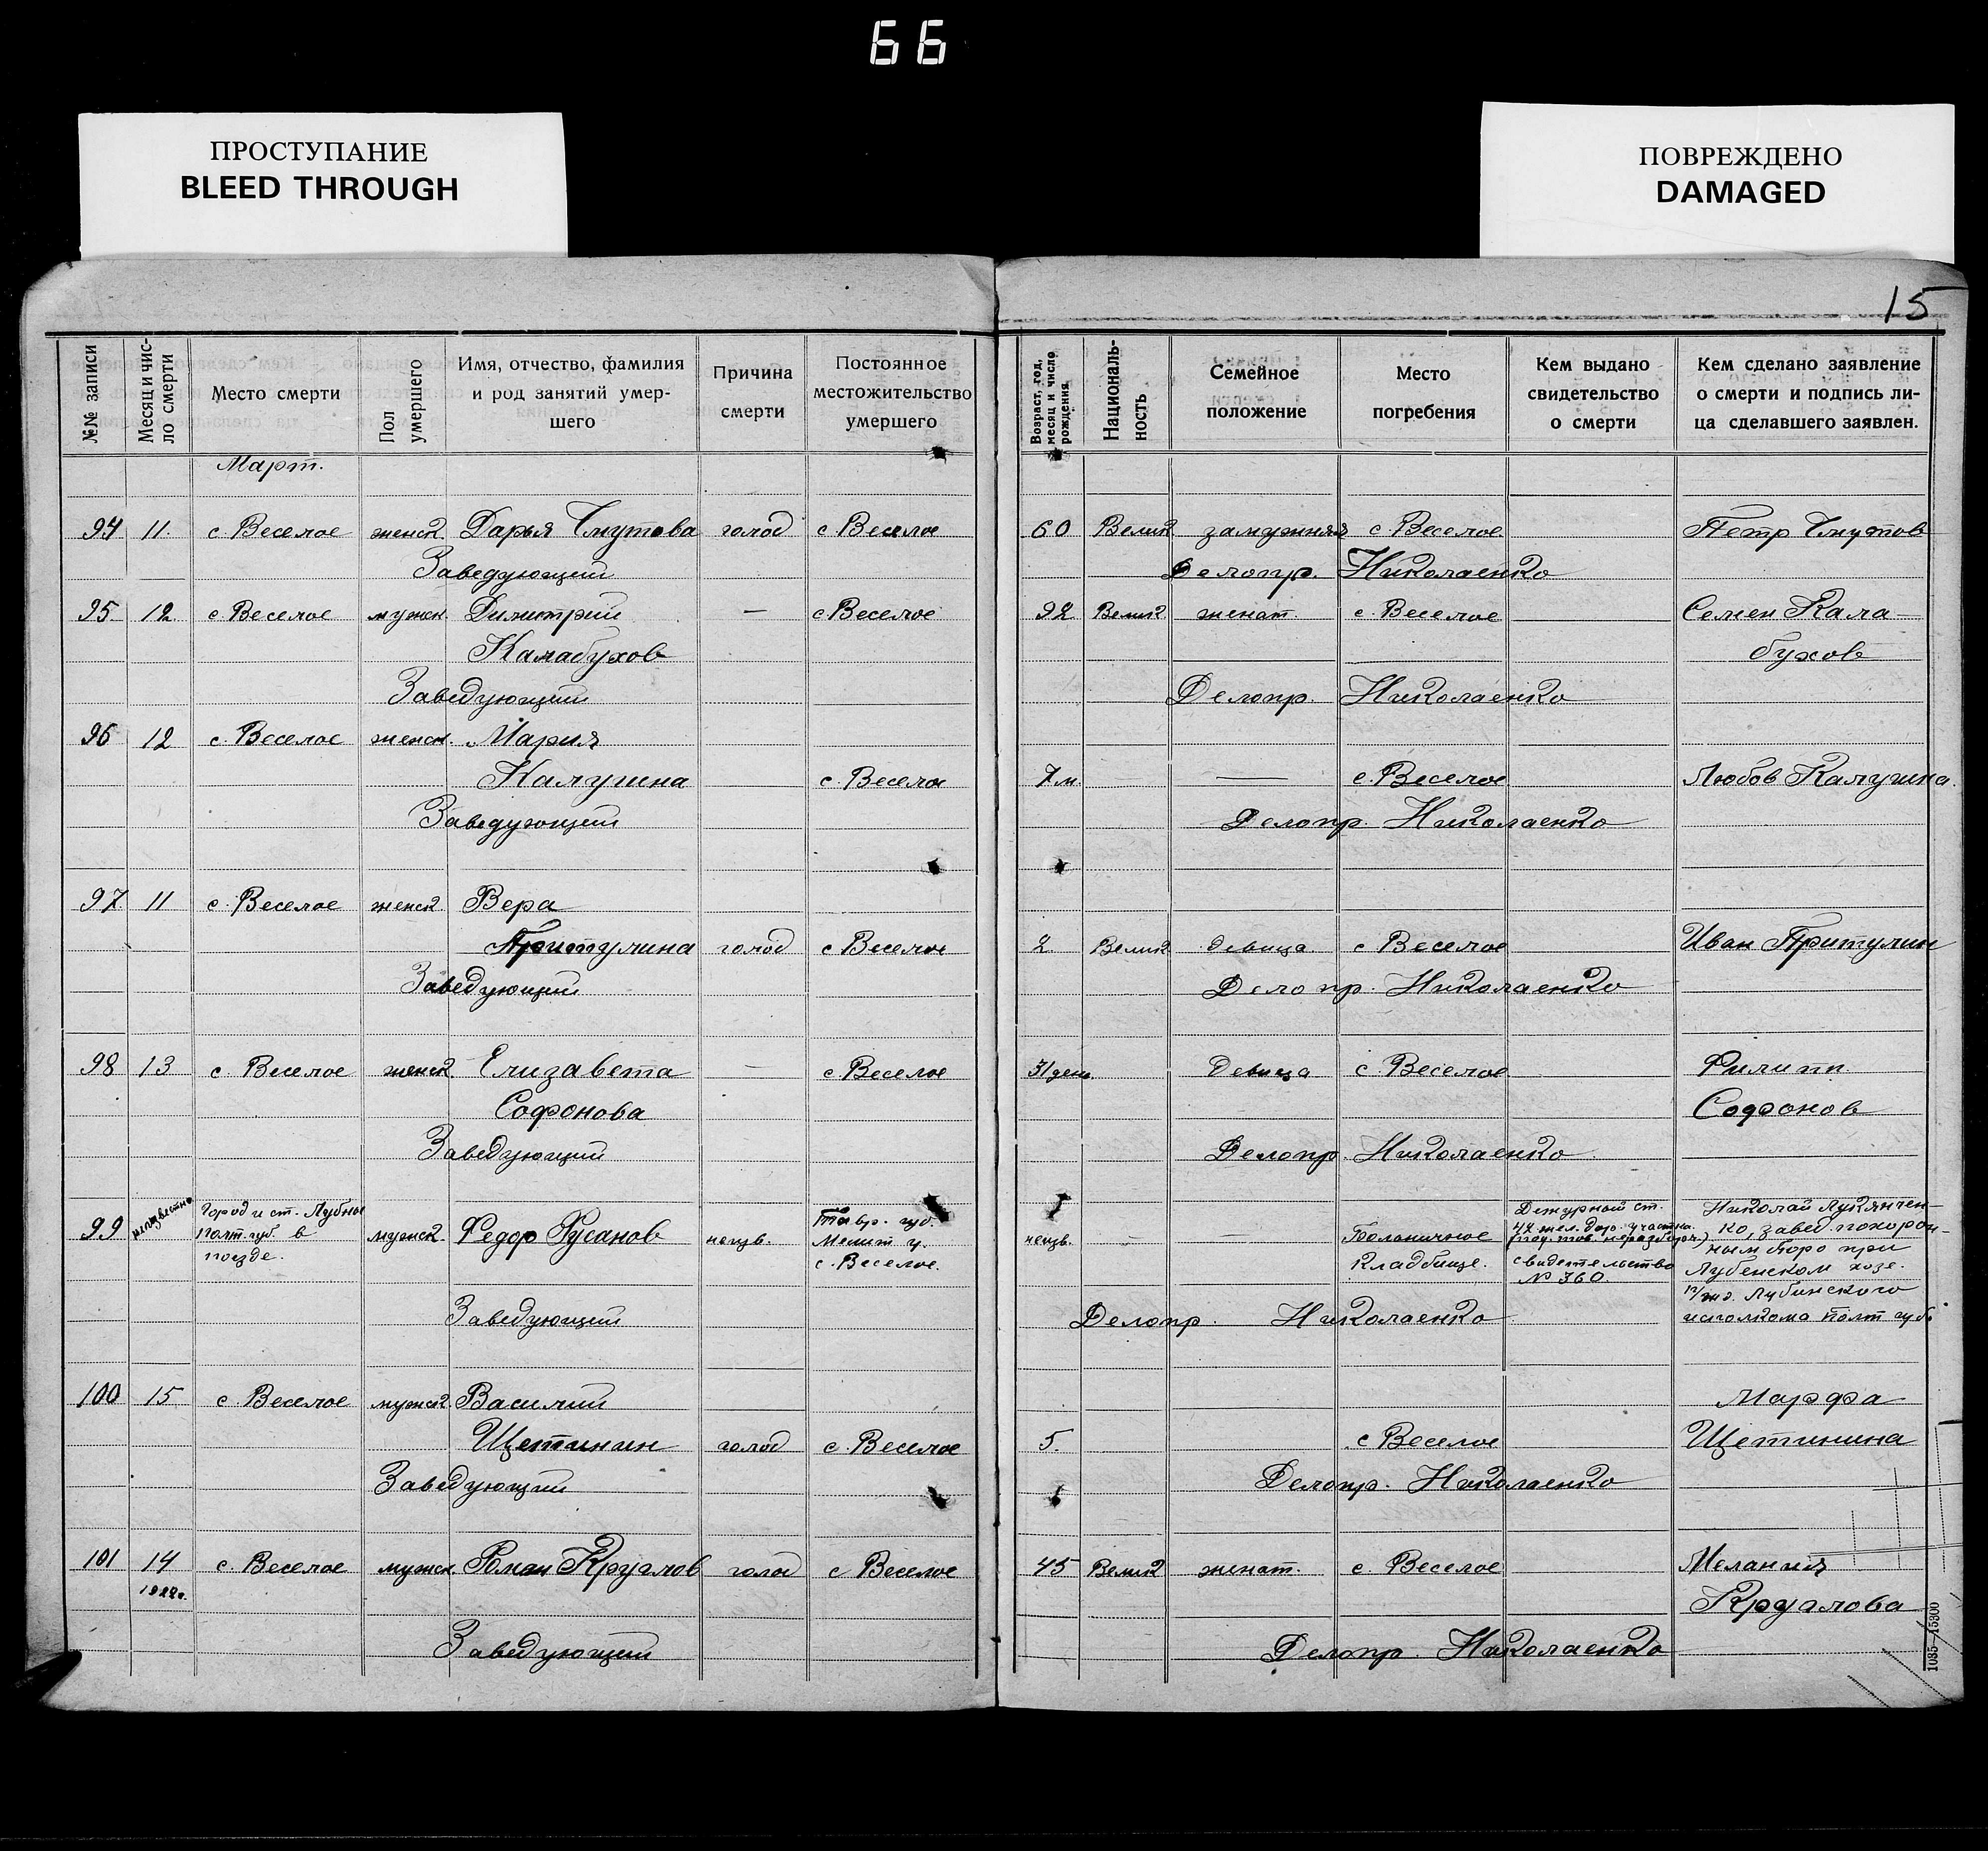 66
ПРОСТУПАНИЕ
BLEED THROUGH
ПОВРЕЖДЕНО
DAMAGED
15
№№ записи
Месяц и чис-
ло смерти
Место смерти
Пол
умершего
Имя, отчество, фамилия
и род занятий умер-
шего
Причина
смерти
Постоянное
местожительство
умершего
Возраст, год,
месяц и число
рождения
Националь-
ность
Семейное
положение
Место
погребения
Кем выдано
свидетельство
о смерти
Кем сделано заявление
о смерти и подпись ли-
ца сделавшего заявлен.
Март.
94 11. с. Веселое женск. Дарья Смутова голод с Веселое 60 Велик. замужняя с Веселое Петр Смутов
Заведующий Делопр. Николаенко
95 12. с Веселое мужск. Димитрий — с Веселое 92 Велик. женат. с Веселое Семен Кала-
Калабухов бухов
Заведующий Делопр. Николаенко
96 12 с. Веселое женск. Мария
Калугина с. Веселое 7 м. — с. Веселое Любов Калугина.
Заведующий Делопр. Николаенко
97 11 с. Веселое женск. Вера
Притулина голод с Веселое 2. Велик. девица с Веселое Иван Притулин
Заведующий Делопр. Николаенко
98 13 с. Веселое женск. Елизавета — с Веселое 31 день. Девица с Веселое Филипп
Софонова Софонов
Заведующий Делопр. Николаенко
99 неизвестно Город и ст. Лубны мужск. Федор Русанов неизв. Тавр. губ. неизв. — — Больничное Дежурный ст. Николай Лукянчен-
полт. губ. в Мелит. у. кладбище. 42 жел. дор. участка ко, завед. похорон-
поезде. с. Веселое. свидетельство ным бюро при
№ 360 Лубенском хозе.
Лубинского
Заведующий Делопр. Николаенко исполкома Полт губ.
100 15 с. Веселое мужск. Василий Марфа
Щетинин голод с. Веселое 5. с Веселое Щетинина
Заведующий Делопр. Николаенко
101 14 с. Веселое мужск. Роман Круглов голод с Веселое 45 Велик. женат. с Веселое Мелания
1922г. Круглова
Заведующий Делопр. Николаенко
1085—15300